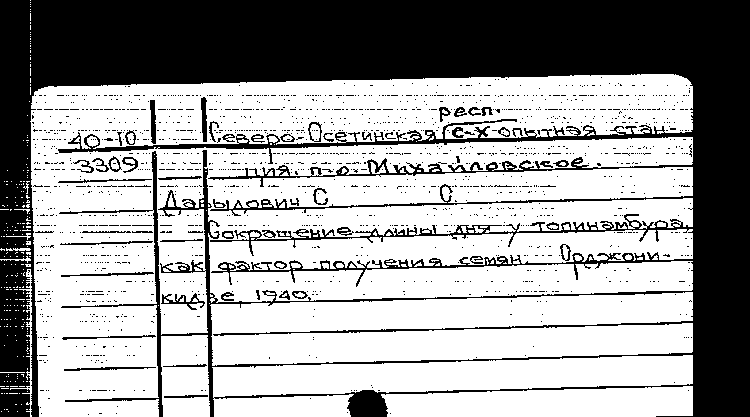 респ.
40-10 Северо-Осетинская с-х опытная стан-
3309 ция. п-о. Михайловское.
Давыдович, С. С.
Сокращение длины дня у топинамбура,
как фактор получения семян. Орджони-
кидзе, 1940.